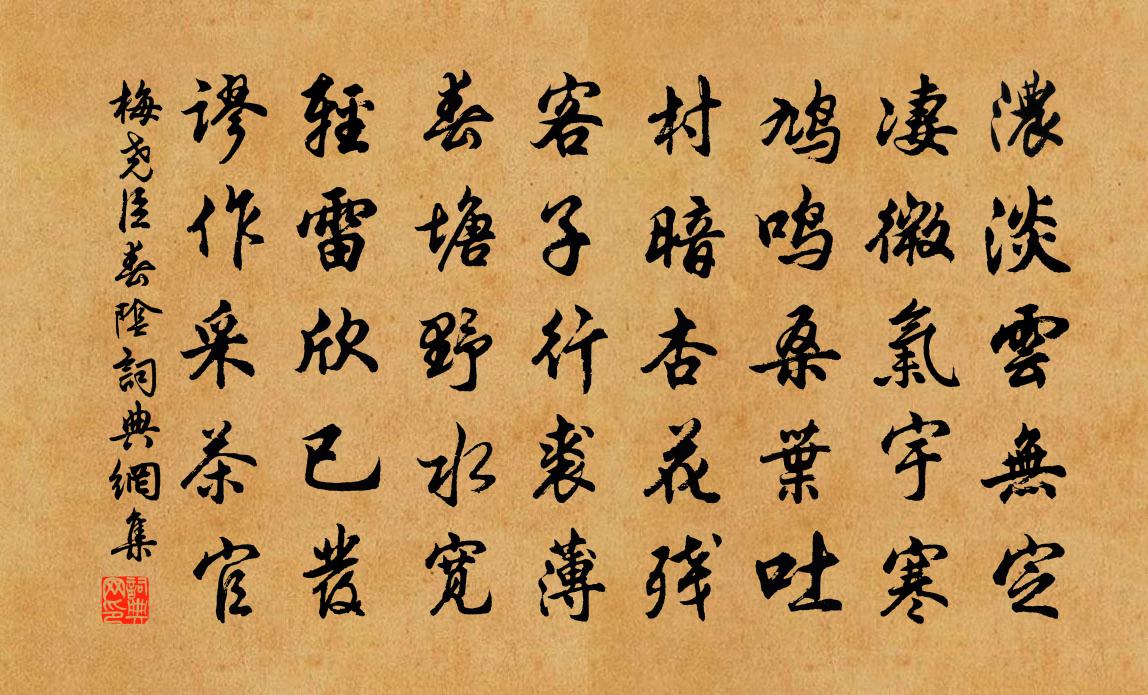 濃淡雲無定
凄微氣宇寒
鸠鸣桑葉吐
村暗杏花残
客子行裘薄
春塘野水寛
輕雷欣已發
謬作采茶官
梅尧臣春陰詞典網集
詞典网印